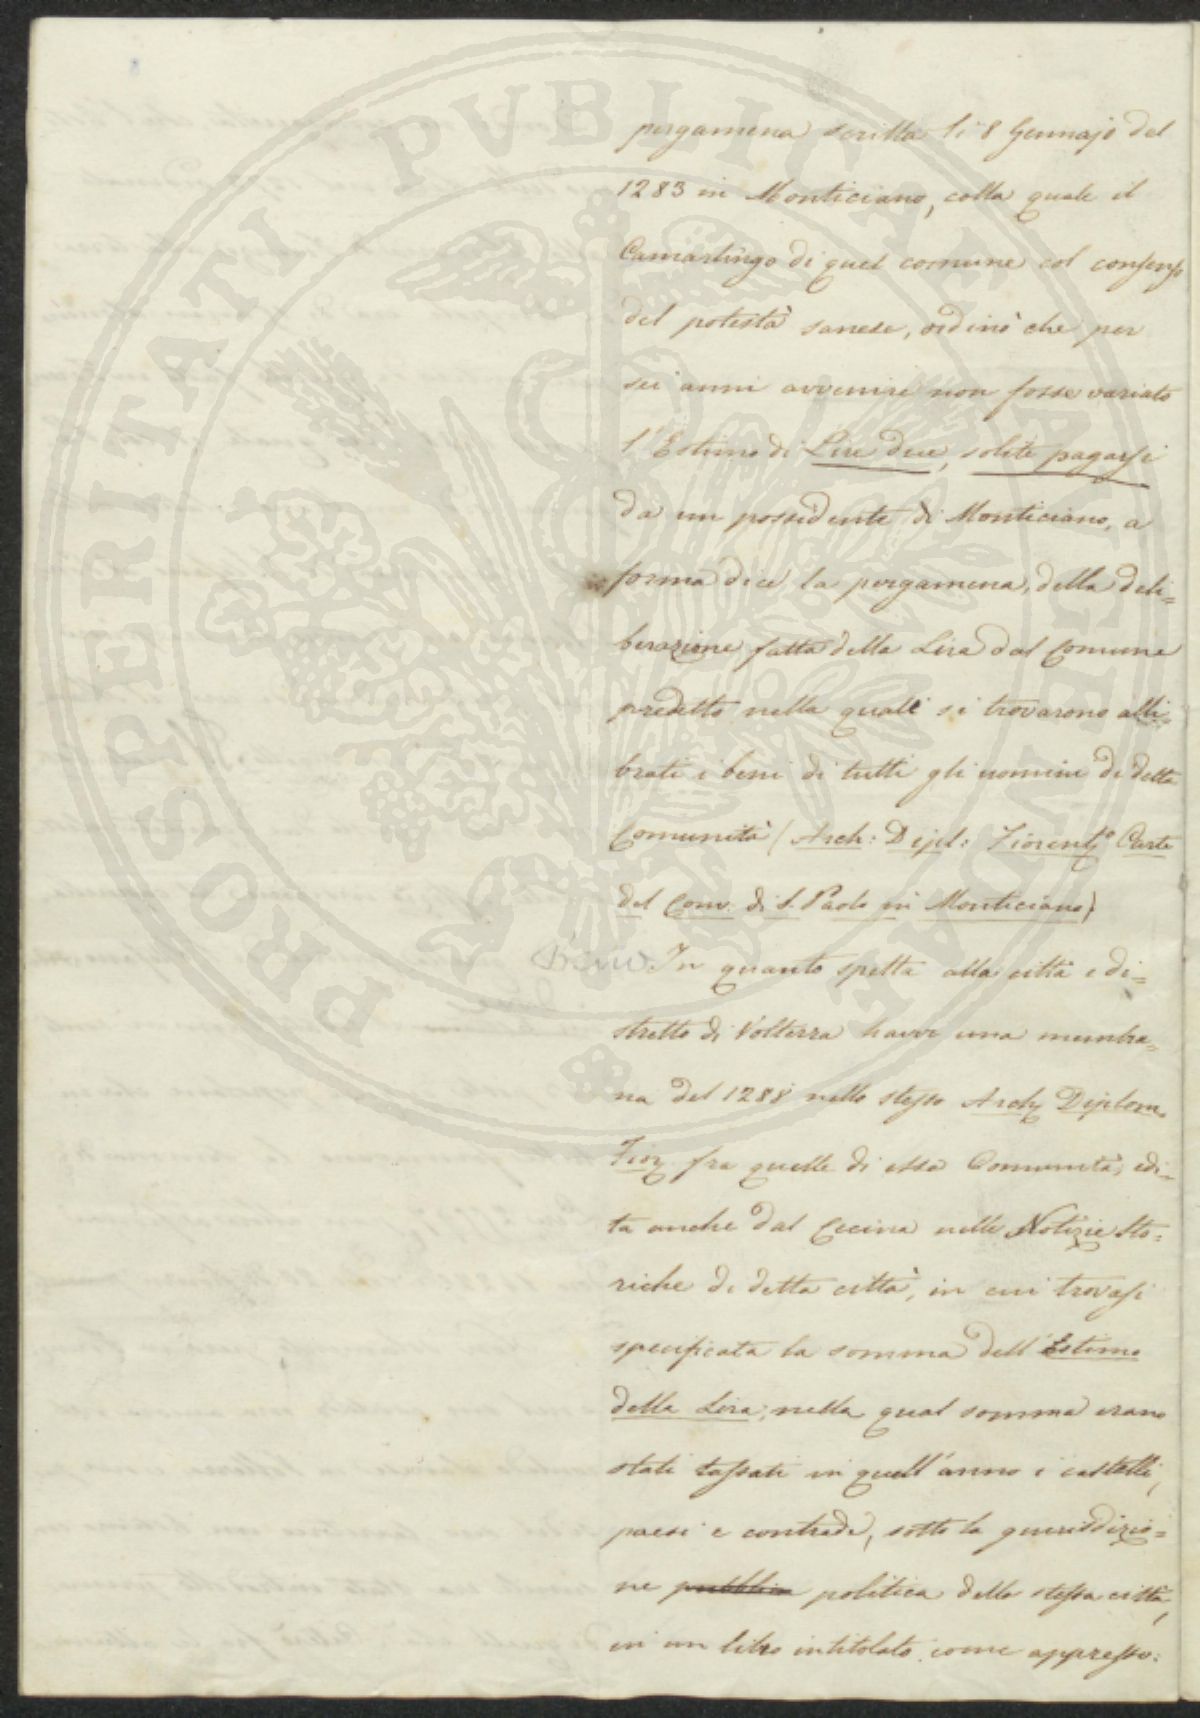 pergamena scritta li 8 Gennajo del
1283 in Monticiano, colla quale il
Camarlingo di quel comune col consenso
del potestà sanese, ordinò che per
sei anni avvenire non fosse variato
l'Estimo di Lire due, solite pagarsi
da un possidente di Monticiano, a
forma dice la pergamena, della deli=
berazione fatta della Lira dal Comune
predetto nella quale si trovarono alli=
brati i beni di tutti gli uomini di detta
Comunità (Arch: Dipl: Fiorent.º Carte
del Conv. di S. Paolo in Monticiano)
In quanto spetta alla città e di=
stretto di Volterra havvi una membra=
na del 1288 nello stesso Arch. Diplom.
Fior. fra quelle di essa Comunità, edi=
ta anche dal Cecina nelle Notizie Sto=
riche di detta città, in cui trovasi
specificata la somma dell'Estimo
della Lira, nella qual somma erano
stati tassati in quell'anno i castelli,
paesi e contrade, sotto la giurisdizio=
ne pubblica politica della stessa città,
in un libro intitolato come appresso:
PROSPERITATI PVBLICAE AVGENDAE